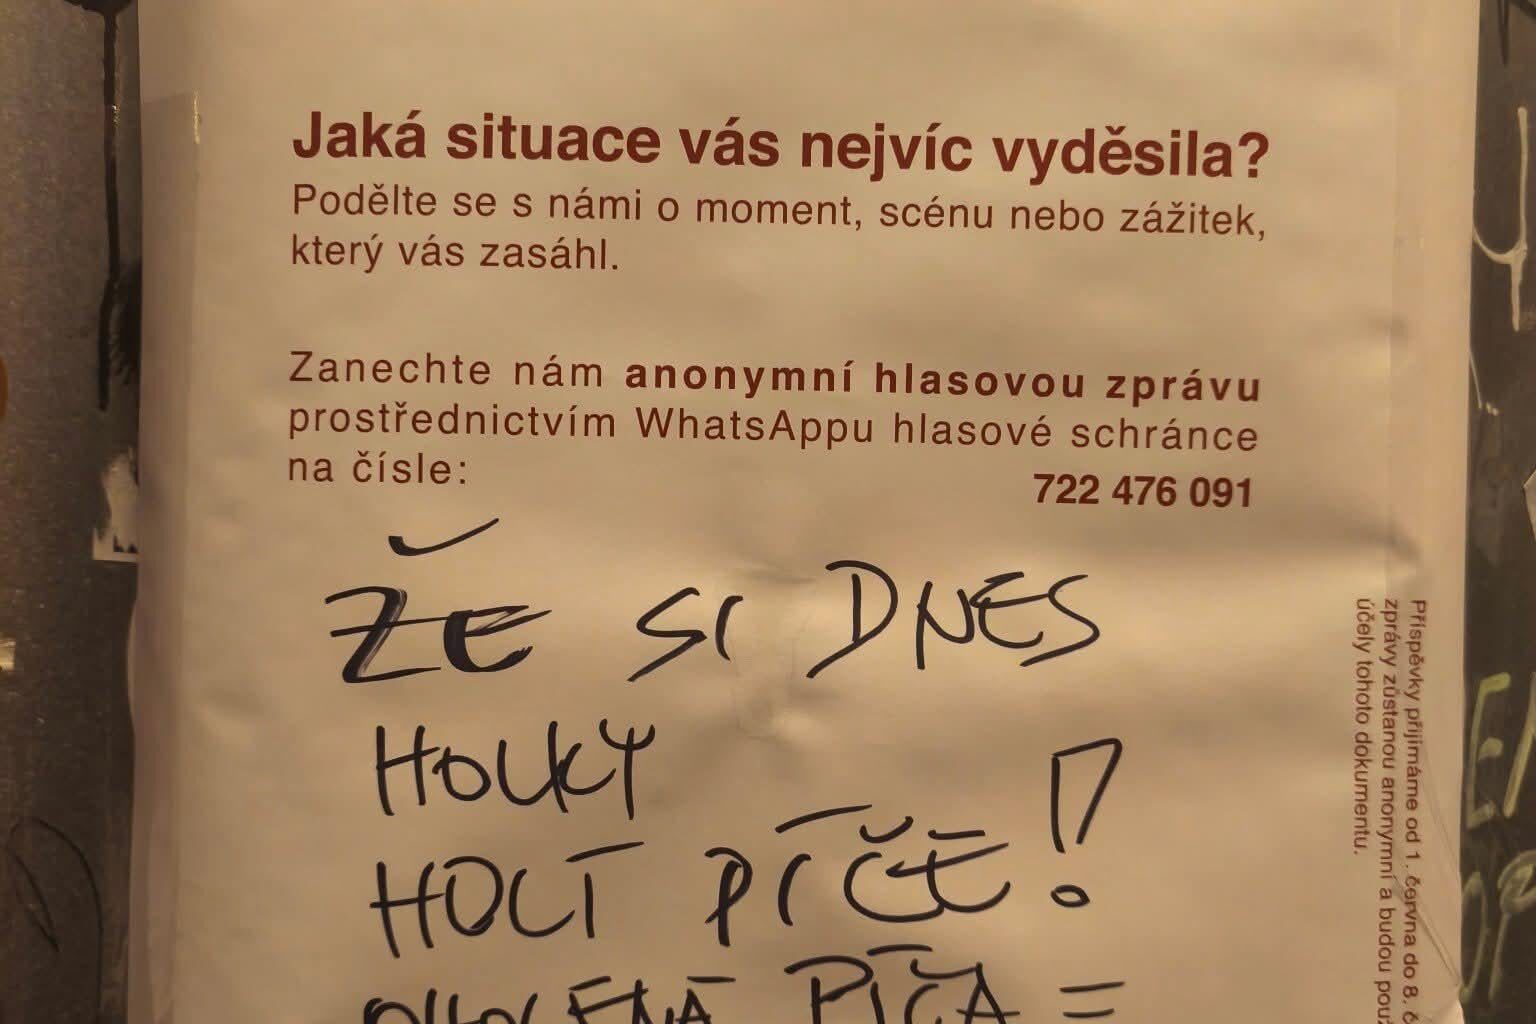 Jaká situace vás nejvíc vyděsila?
Podělte se s námi o moment, scénu nebo zážitek,
který vás zasáhl.
Zanechte nám anonymní hlasovou zprávu
prostřednictvím WhatsAppu hlasové schránce
na čísle:
722 476 091
ŽE SI DNES
HOLKY
HOLÍ PÍČE!
PÍČA =
Příspěvky přijímáme od 1. června do 8. č
zprávy zůstanou anonymní a budou použ
účely tohoto dokumentu.